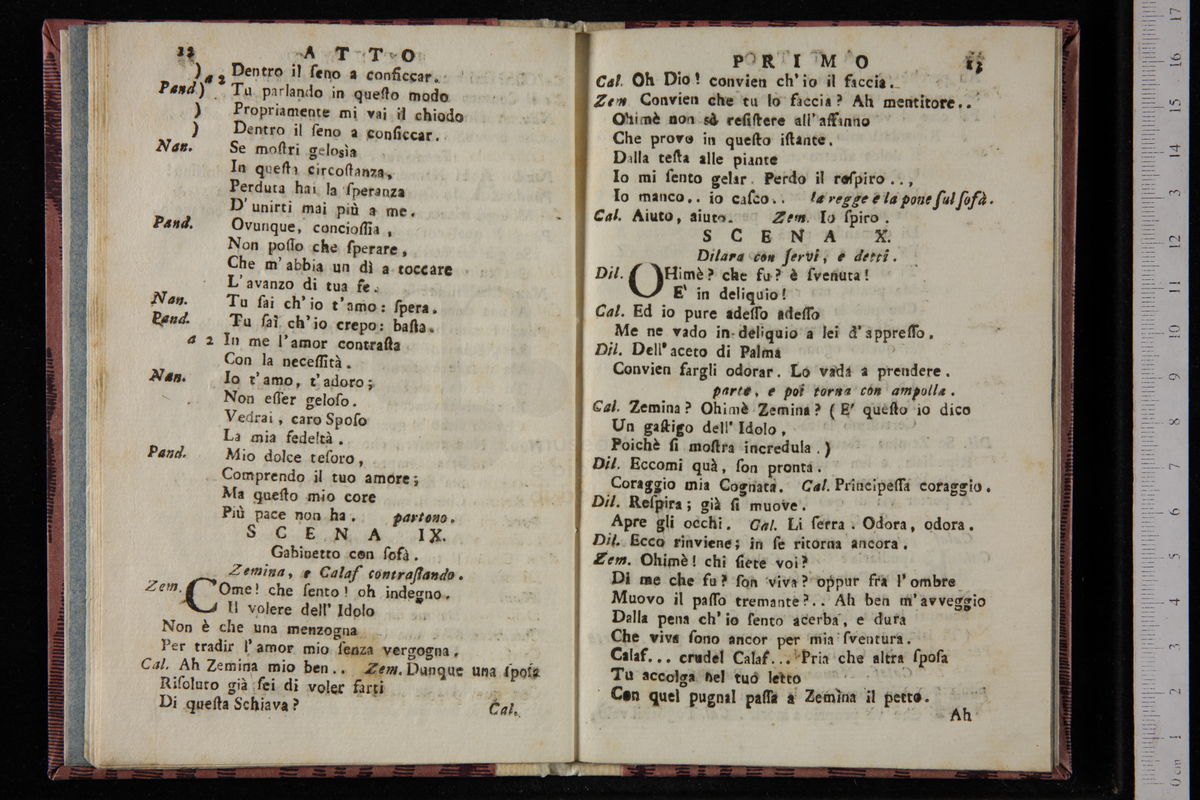 12 ATTO
) a 2 Dentro il ſeno a conficcar.
Pand) Tu parlando in queſto modo
) Propriamente mi vai il chiodo
) Dentro il ſeno a conficcar.
Nan. Se moſtri gelosìa
In queſta circoſtanza,
Perduta hai la ſperanza
D' unirti mai più a me.
Pand. Ovunque, concioſſia,
Non poſſo che ſperare,
Che m' abbia un dì a toccare
L' avanzo di tua fe.
Nan. Tu ſai ch' io t' amo: ſpera.
Pand. Tu ſai ch' io crepo: baſta.
a 2 In me l' amor contraſta
Con la neceſſità.
Nan. Io t' amo, t' adoro;
Non eſſer geloſo.
Vedrai, caro Spoſo
La mia fedeltà.
Pand. Mio dolce teſoro,
Comprendo il tuo amore;
Ma queſto mio core
Più pace non ha. partono.
SCENA IX.
Gabinetto con ſofà.
Zemina, e Calaf contraſtando.
Zem. COme! che ſento! oh indegno.
Il volere dell' Idolo
Non è che una menzogna
Per tradir l' amor mio ſenza vergogna.
Cal. Ah Zemina mio ben.. Zem. Dunque una ſpoſa
Riſoluto già ſei di voler farti
Di queſta Schiava?
Cal.
PRIMO 13
Cal. Oh Dio! convien ch' io il faccia.
Zem. Convien che tu lo faccia? Ah mentitore..
Ohimè non sò reſiſtere all' affanno
Che provo in queſto iſtante.
Dalla teſta alle piante
Io mi ſento gelar. Perdo il reſpiro..,
Io manco.. io caſco.. la regge e la pone ſul ſofà.
Cal. Aiuto, aiuto. Zem. Io ſpiro.
SCENA X.
Dilara con ſervi, e detti.
Dil. OHimè? che fu? è ſvenuta!
E' in deliquio!
Cal. Ed io pure adeſſo adeſſo
Me ne vado in deliquio a lei d' appreſſo.
Dil. Dell' aceto di Palma
Convien fargli odorar. Lo vada a prendere.
parte, e poi torna con ampolla.
Cal. Zemina? Ohimè Zemina? (E' queſto io dico
Un gaſtigo dell' Idolo,
Poichè ſi moſtra incredula.)
Dil. Eccomi quà, ſon pronta.
Coraggio mia Cognata. Cal. Principeſſa coraggio.
Dil. Reſpira; già ſi muove.
Apre gli occhi. Cal. Li ſerra. Odora, odora.
Dil. Ecco rinviene; in ſe ritorna ancora.
Zem. Ohimè! chi ſiete voi?
Di me che fu? ſon viva? oppur fra l' ombre
Muovo il paſſo tremante?.. Ah ben m' avveggio
Dalla pena ch' io ſento acerba, e dura
Che viva ſono ancor per mia ſventura.
Calaf... crudel Calaf... Pria che altra ſpoſa
Tu accolga nel tuo letto
Con quel pugnal paſſa a Zemina il petto.
Ah